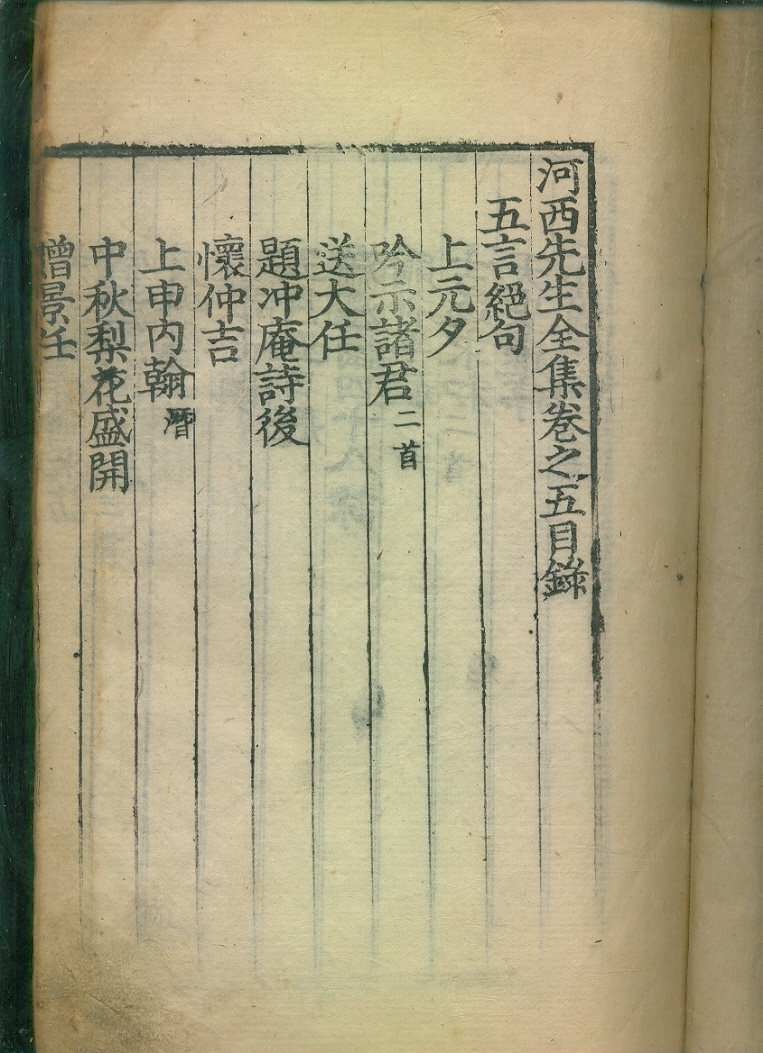 河西先生全集卷之五目錄
五言絕句
上元夕
吟示諸君二首
送大任
題冲庵詩後
懷仲吉
上申内翰濳
中秋梨花盛開
贈景任